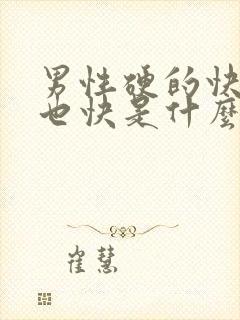 男性硬的快
也快是什麼
崔慧